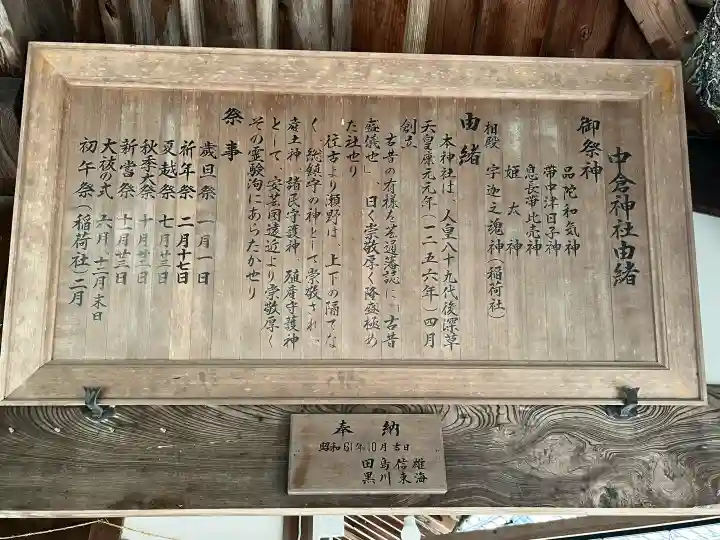 中倉神社由緒
御祭神
品陀和気神
帯中津日子神
息長帯比売神
姫大神
相殿 宇迦之魂神(稲荷社)
由緒
本神社は、人皇八十九代後深草
天皇康元元年(一二五六年)四月
創立
古昔の有様を芸通藩誌に、古昔
盛儀也」、曰く崇敬厚く隆盛極め
た社也り
往古より瀬野は、上下の隔てな
く、総鎮守の神として崇敬され、
産土神、諸民守護神、殖産守護神
として、安芸国遠近より崇敬厚く
その霊験洵にあらたかせり
祭事
歳旦祭 一月一日
祈年祭 二月十七日
夏越祭 七月廿三日
秋季大祭 十月廿三日
新嘗祭 十一月廿三日
大祓の式 六月、十二月末日
初午祭(稲荷社)二月
奉納
昭和61年10月吉日
田島信雄
黒川東海